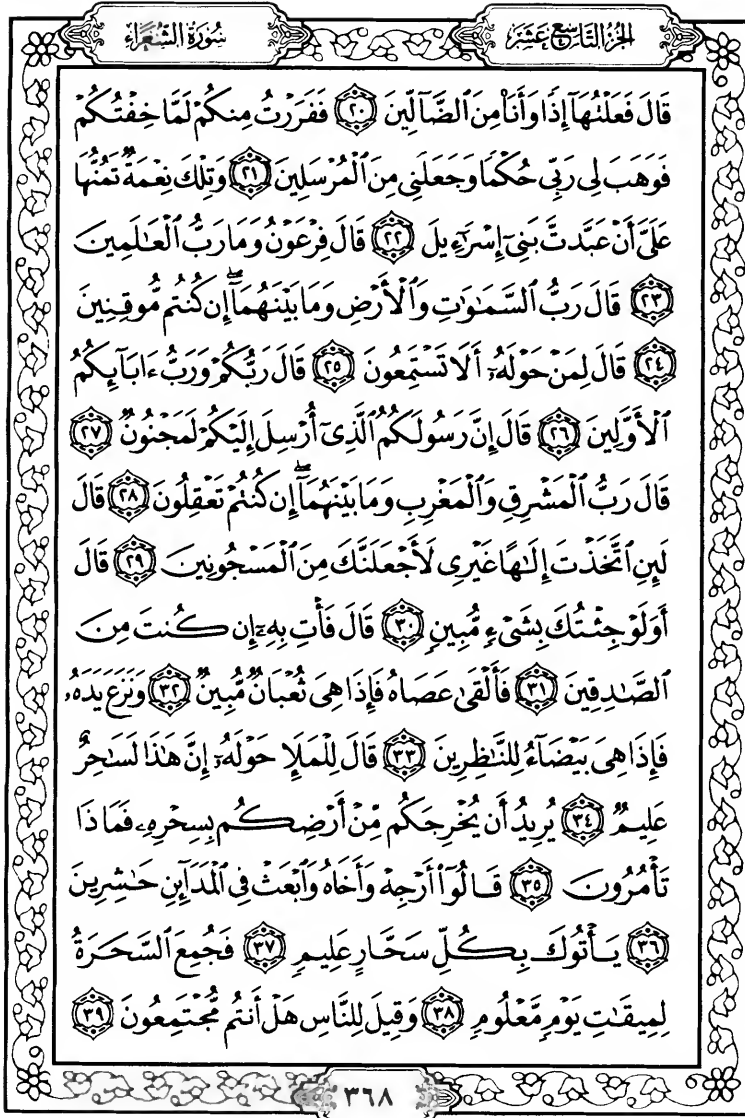 الجزء التاسع عشر
سُورَةُ الشُّعَرَاء
قَالَ فَعَلْتُهَآ إِذًا وَأَنَا۠ مِنَ ٱلضَّآلِّينَ ﴿٢٠﴾ فَفَرَرْتُ مِنكُمْ لَمَّا خِفْتُكُمْ
فَوَهَبَ لِى رَبِّى حُكْمًا وَجَعَلَنِى مِنَ ٱلْمُرْسَلِينَ ﴿٢١﴾ وَتِلْكَ نِعْمَةٌ تَمُنُّهَا
عَلَىَّ أَنْ عَبَّدتَّ بَنِىٓ إِسْرَٰٓءِيلَ ﴿٢٢﴾ قَالَ فِرْعَوْنُ وَمَا رَبُّ ٱلْعَـٰلَمِينَ
﴿٢٣﴾ قَالَ رَبُّ ٱلسَّمَـٰوَٰتِ وَٱلْأَرْضِ وَمَا بَيْنَهُمَآ ۖ إِن كُنتُم مُّوقِنِينَ
﴿٢٤﴾ قَالَ لِمَنْ حَوْلَهُۥٓ أَلَا تَسْتَمِعُونَ ﴿٢٥﴾ قَالَ رَبُّكُمْ وَرَبُّ ءَابَآئِكُمُ
ٱلْأَوَّلِينَ ﴿٢٦﴾ قَالَ إِنَّ رَسُولَكُمُ ٱلَّذِىٓ أُرْسِلَ إِلَيْكُمْ لَمَجْنُونٌ ﴿٢٧﴾
قَالَ رَبُّ ٱلْمَشْرِقِ وَٱلْمَغْرِبِ وَمَا بَيْنَهُمَآ ۖ إِن كُنتُمْ تَعْقِلُونَ ﴿٢٨﴾ قَالَ
لَئِنِ ٱتَّخَذْتَ إِلَـٰهًا غَيْرِى لَأَجْعَلَنَّكَ مِنَ ٱلْمَسْجُونِينَ ﴿٢٩﴾ قَالَ
أَوَلَوْ جِئْتُكَ بِشَىْءٍ مُّبِينٍ ﴿٣٠﴾ قَالَ فَأْتِ بِهِۦٓ إِن كُنتَ مِنَ
ٱلصَّـٰدِقِينَ ﴿٣١﴾ فَأَلْقَىٰ عَصَاهُ فَإِذَا هِىَ ثُعْبَانٌ مُّبِينٌ ﴿٣٢﴾ وَنَزَعَ يَدَهُۥ
فَإِذَا هِىَ بَيْضَآءُ لِلنَّـٰظِرِينَ ﴿٣٣﴾ قَالَ لِلْمَلَإِ حَوْلَهُۥٓ إِنَّ هَـٰذَا لَسَـٰحِرٌ
عَلِيمٌ ﴿٣٤﴾ يُرِيدُ أَن يُخْرِجَكُم مِّنْ أَرْضِكُم بِسِحْرِهِۦ فَمَاذَا
تَأْمُرُونَ ﴿٣٥﴾ قَالُوٓا۟ أَرْجِهْ وَأَخَاهُ وَٱبْعَثْ فِى ٱلْمَدَآئِنِ حَـٰشِرِينَ
﴿٣٦﴾ يَأْتُوكَ بِكُلِّ سَحَّارٍ عَلِيمٍ ﴿٣٧﴾ فَجُمِعَ ٱلسَّحَرَةُ
لِمِيقَـٰتِ يَوْمٍ مَّعْلُومٍ ﴿٣٨﴾ وَقِيلَ لِلنَّاسِ هَلْ أَنتُم مُّجْتَمِعُونَ ﴿٣٩﴾
٣٦٨